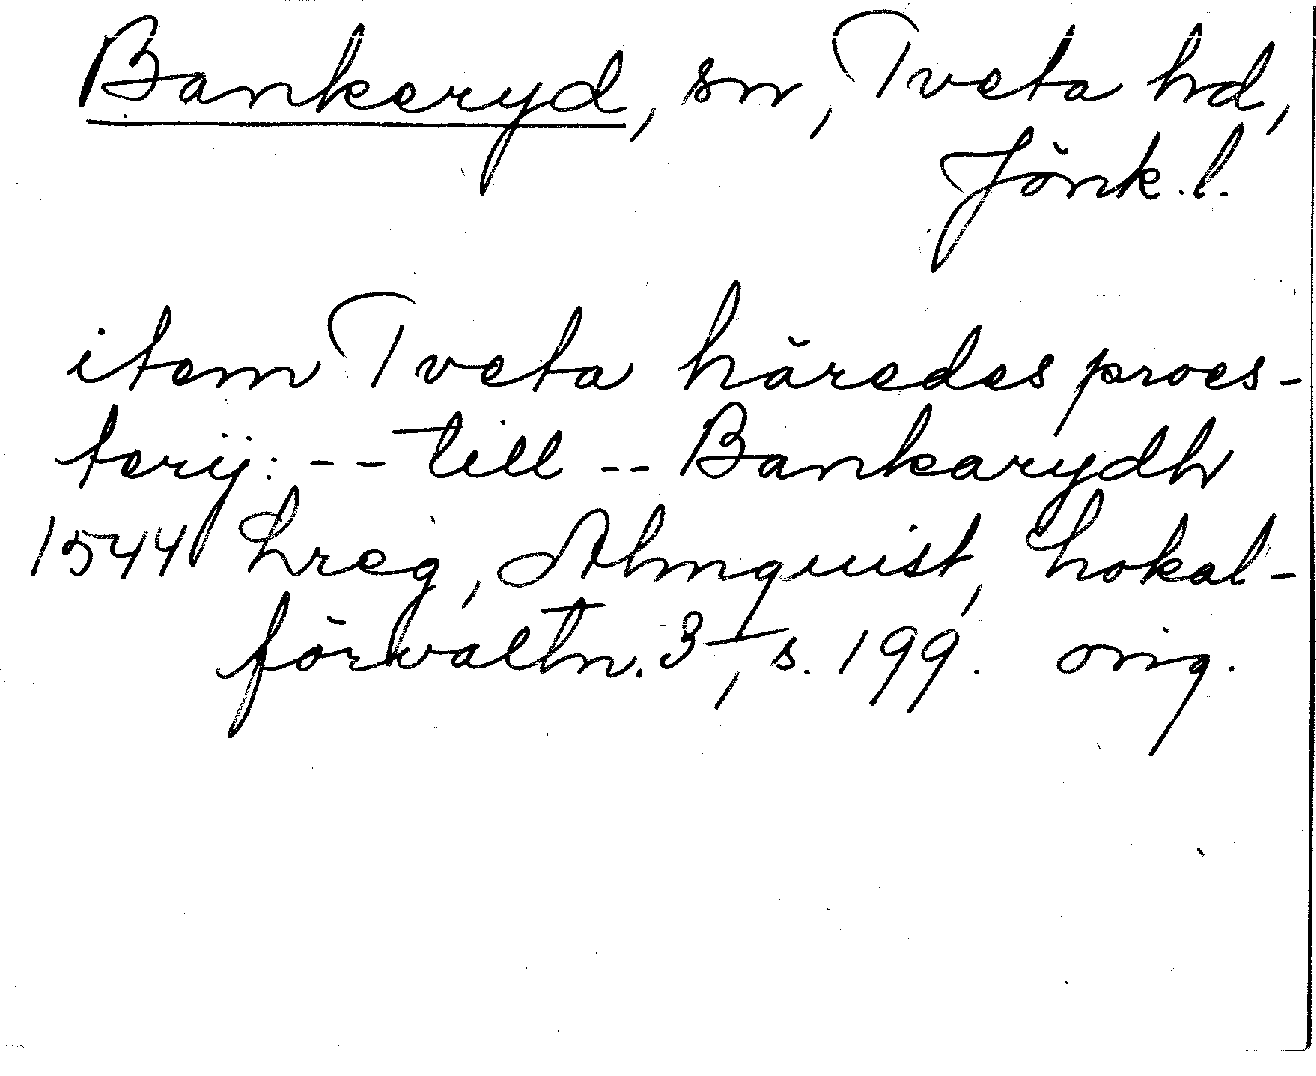 Bankeryd, sn, Tveta hd,
Jönk. l.
item Tveta häredes proes-
terij: -- till -- Bankarydh
1544 Lreg, Almquist, Lokal-
förvaltn. 3, s. 199. orig.